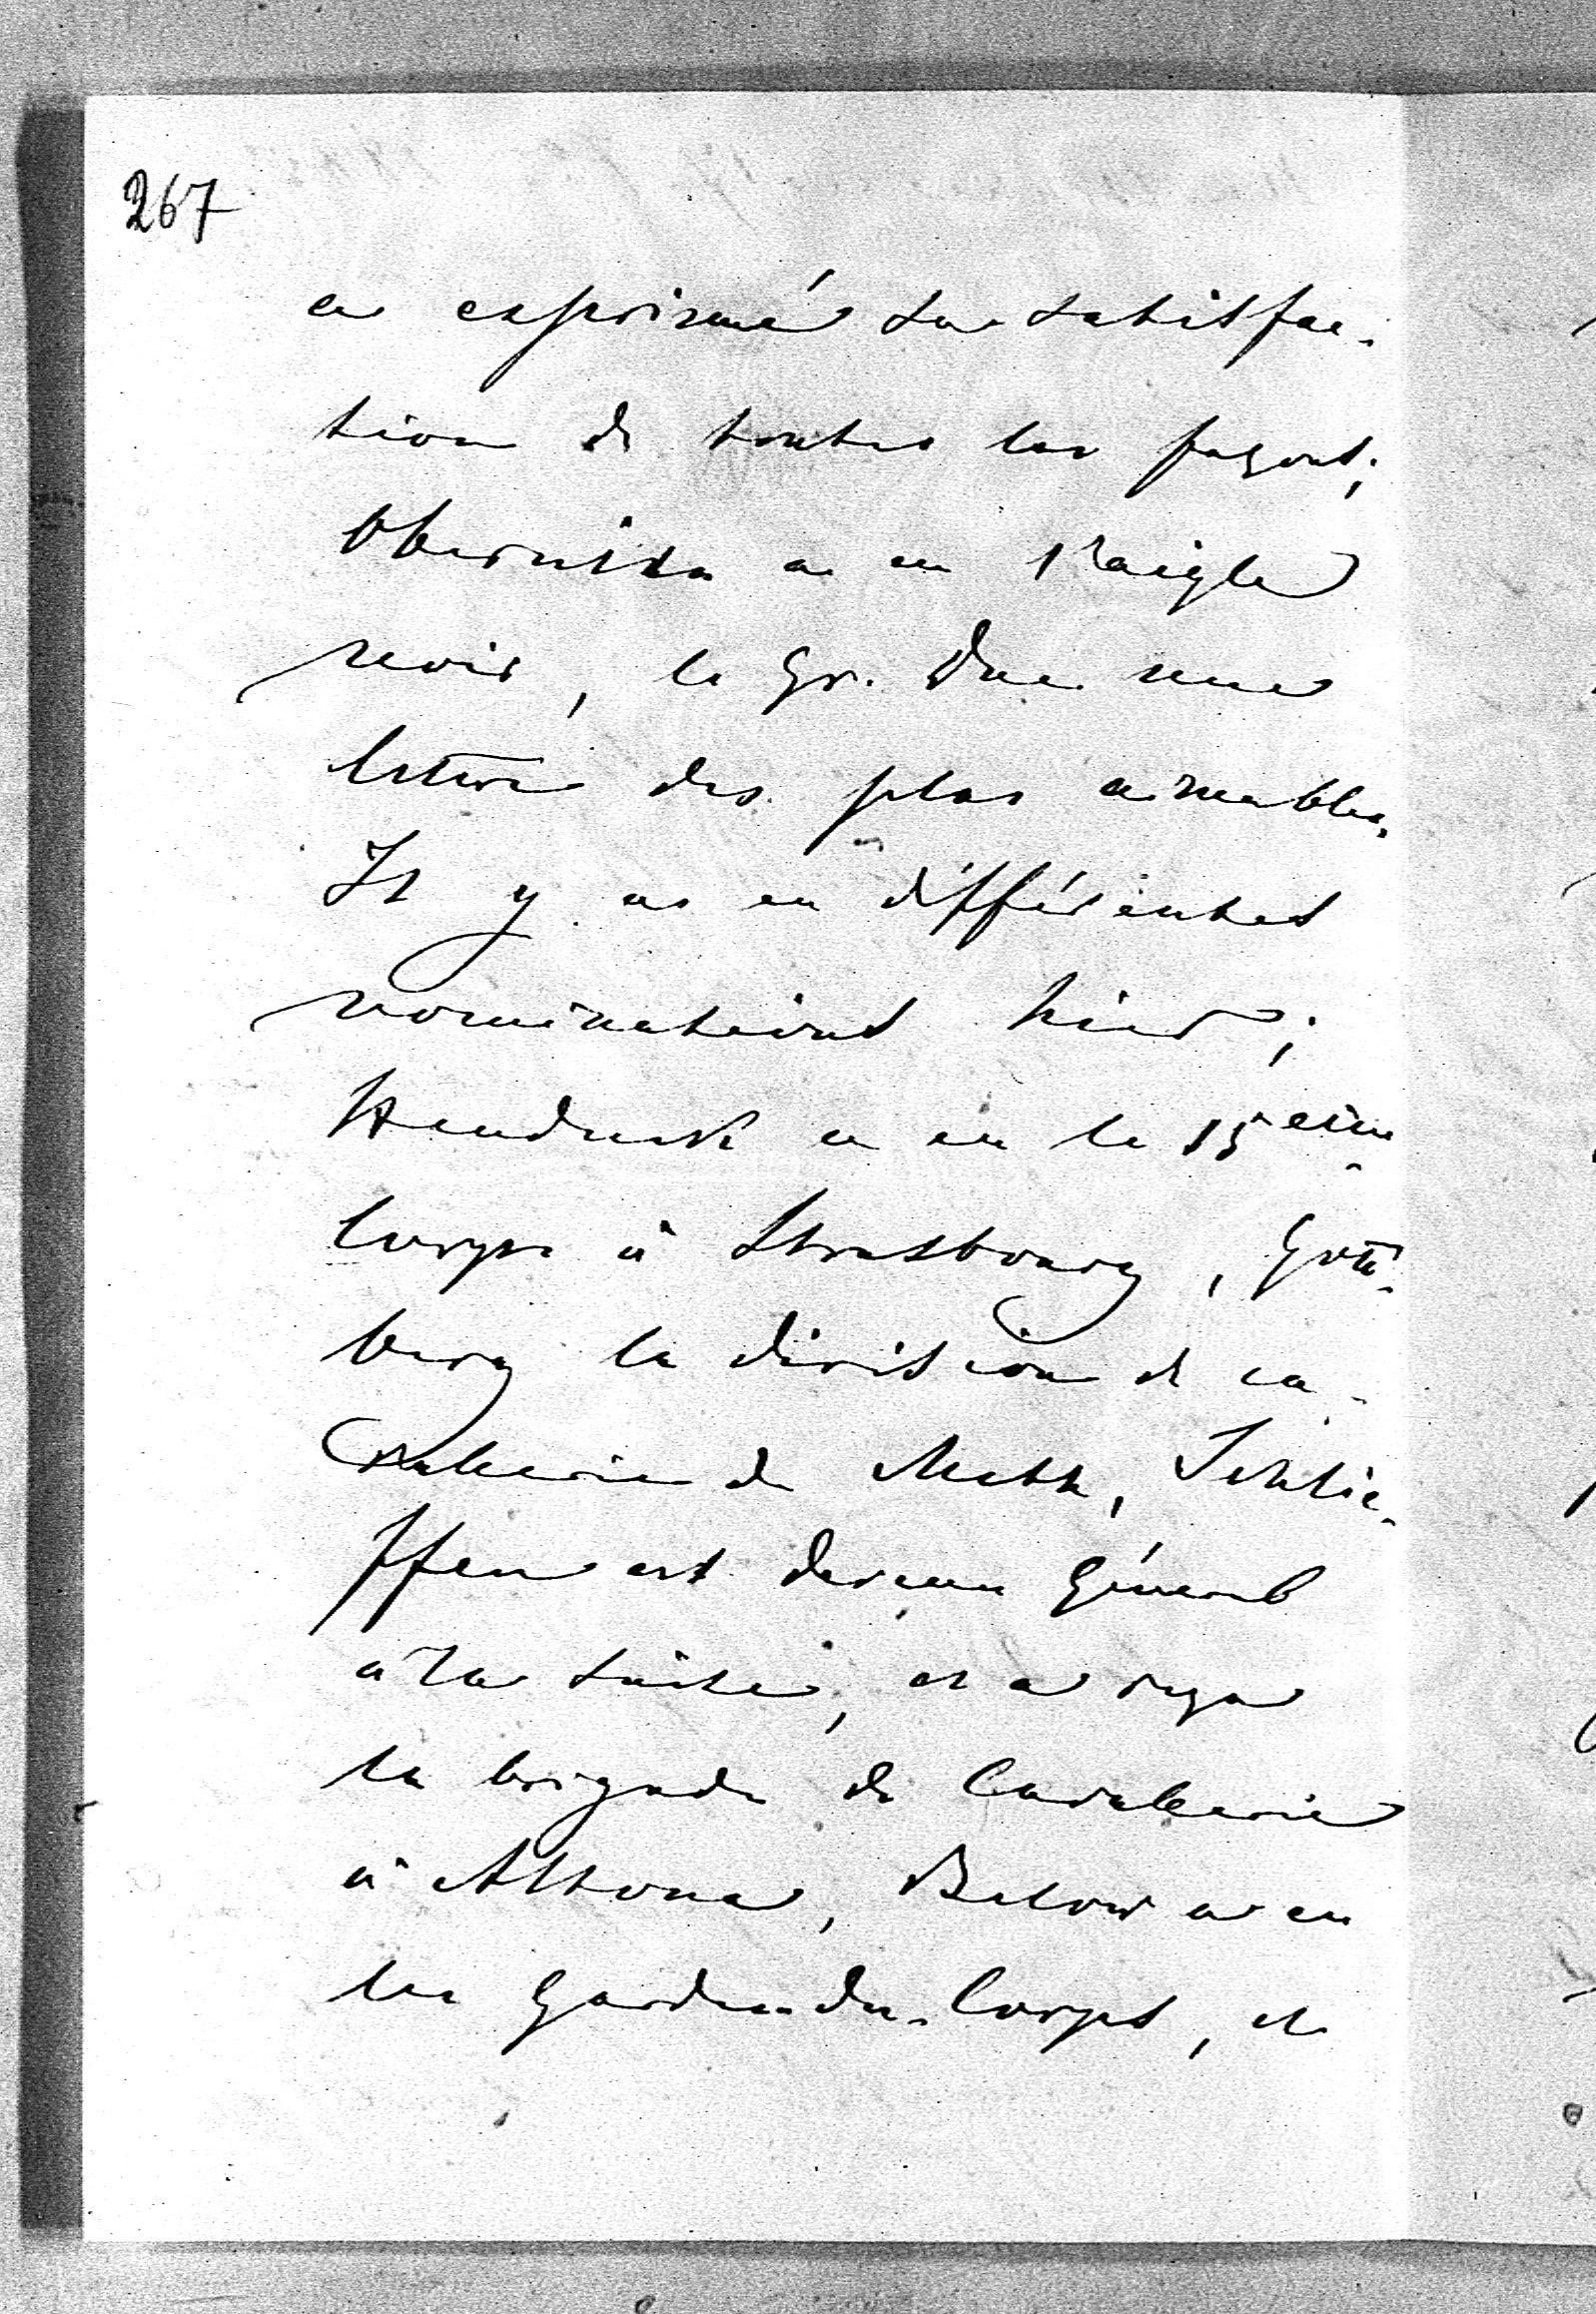 267
a exprimé sa satisfac-
tion de toutes les façons;
Obernitz a eu l'aigle
noir, le Gr. Duc une
lettre des plus aimables.
Il y a eu différentes
nominations hier;
Heuduck a eu le 15eme
Corps à Strasbourg, Gott-
berg la division de ca-
valerie de Metz, Schlie-
ffen est devenu Général
à la suite, et a reçu
la brigade de Cavalerie
à Altona, Below a eu
les Gardes-du-Corps, et